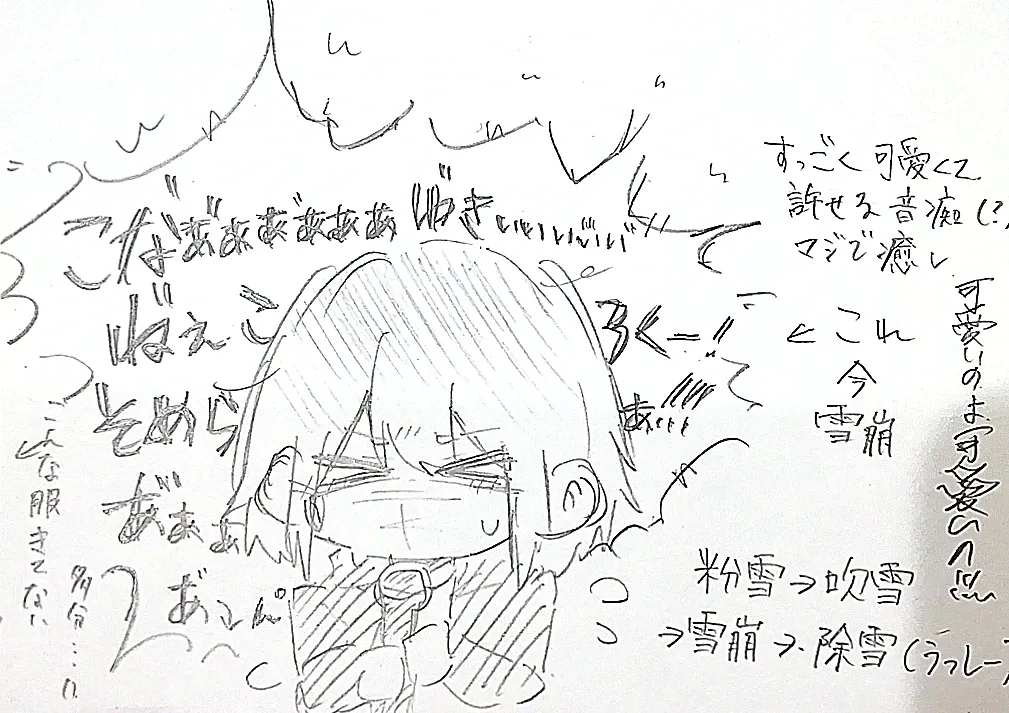 こなぁぁぁぁぁぁゆきぃぃぃぃぃ
ねぇこころくーー
そめら
あぁぁ
すっごく可愛くて
許せる音痴(?)
マジで癒し
←これ
今
雪崩
可愛いのよ可愛い
粉雪→吹雪
→雪崩→除雪(ラッシー)
こんな服きてない
多分……